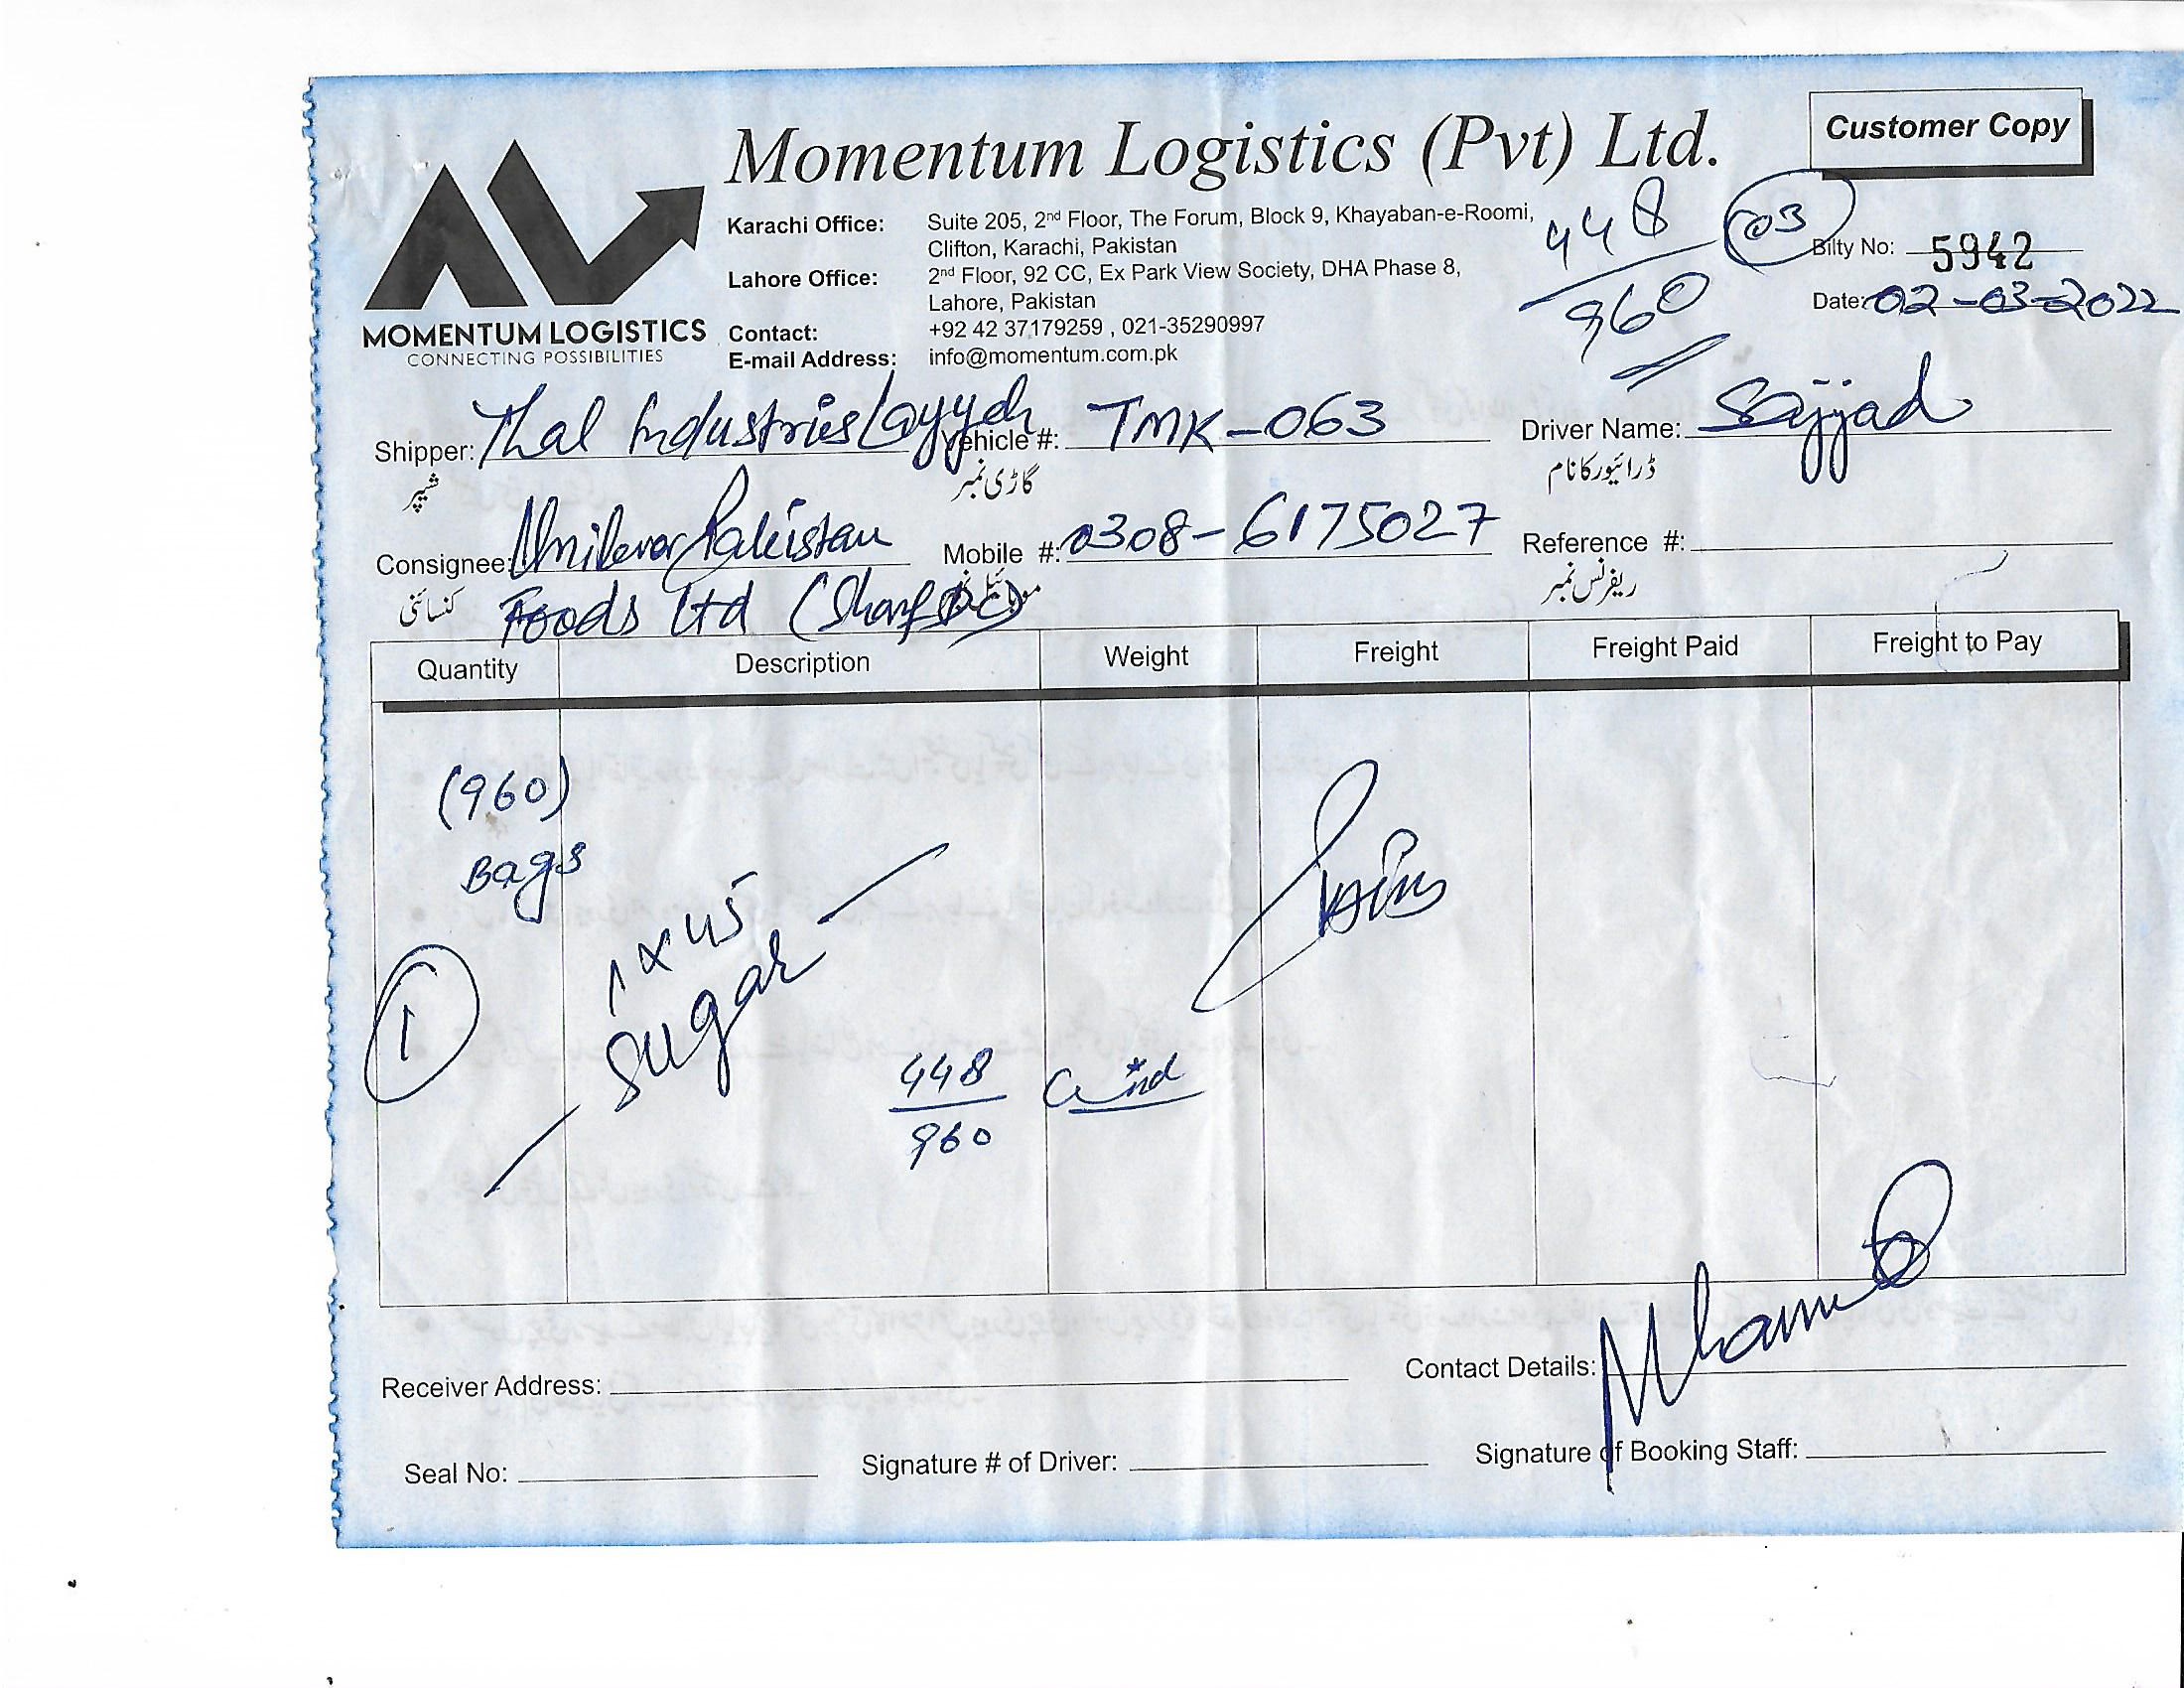 Customer Copy
Momentum Logistics (Pvt) Ltd.
MOMENTUM LOGISTICS
CONNECTING POSSIBILITIES
Karachi Office: Suite 205, 2nd Floor, The Forum, Block 9, Khayaban-e-Roomi,
Clifton, Karachi, Pakistan
Lahore Office: 2nd Floor, 92 CC, Ex Park View Society, DHA Phase 8,
Lahore, Pakistan
Contact: +92 42 37179259 , 021-35290997
E-mail Address: info@momentum.com.pk
448
960
03
Bilty No: 5942
Date: 02-03-2022
Shipper: Thal Industries Layyah Vehicle #: TMK-063 Driver Name: Sajjad
شپر گاڑی نمبر ڈرائیور کا نام
Consignee: Unilever Pakistan Mobile #: 0308-6175027 Reference #:
کنسائنی موبائل نمبر ریفرنس نمبر
Foods Ltd
Quantity Description Weight Freight Freight Paid Freight to Pay
(960)
Bags
1 x 45
Sugar
1
448
960
Receiver Address: Contact Details:
Seal No: Signature # of Driver: Signature of Booking Staff: